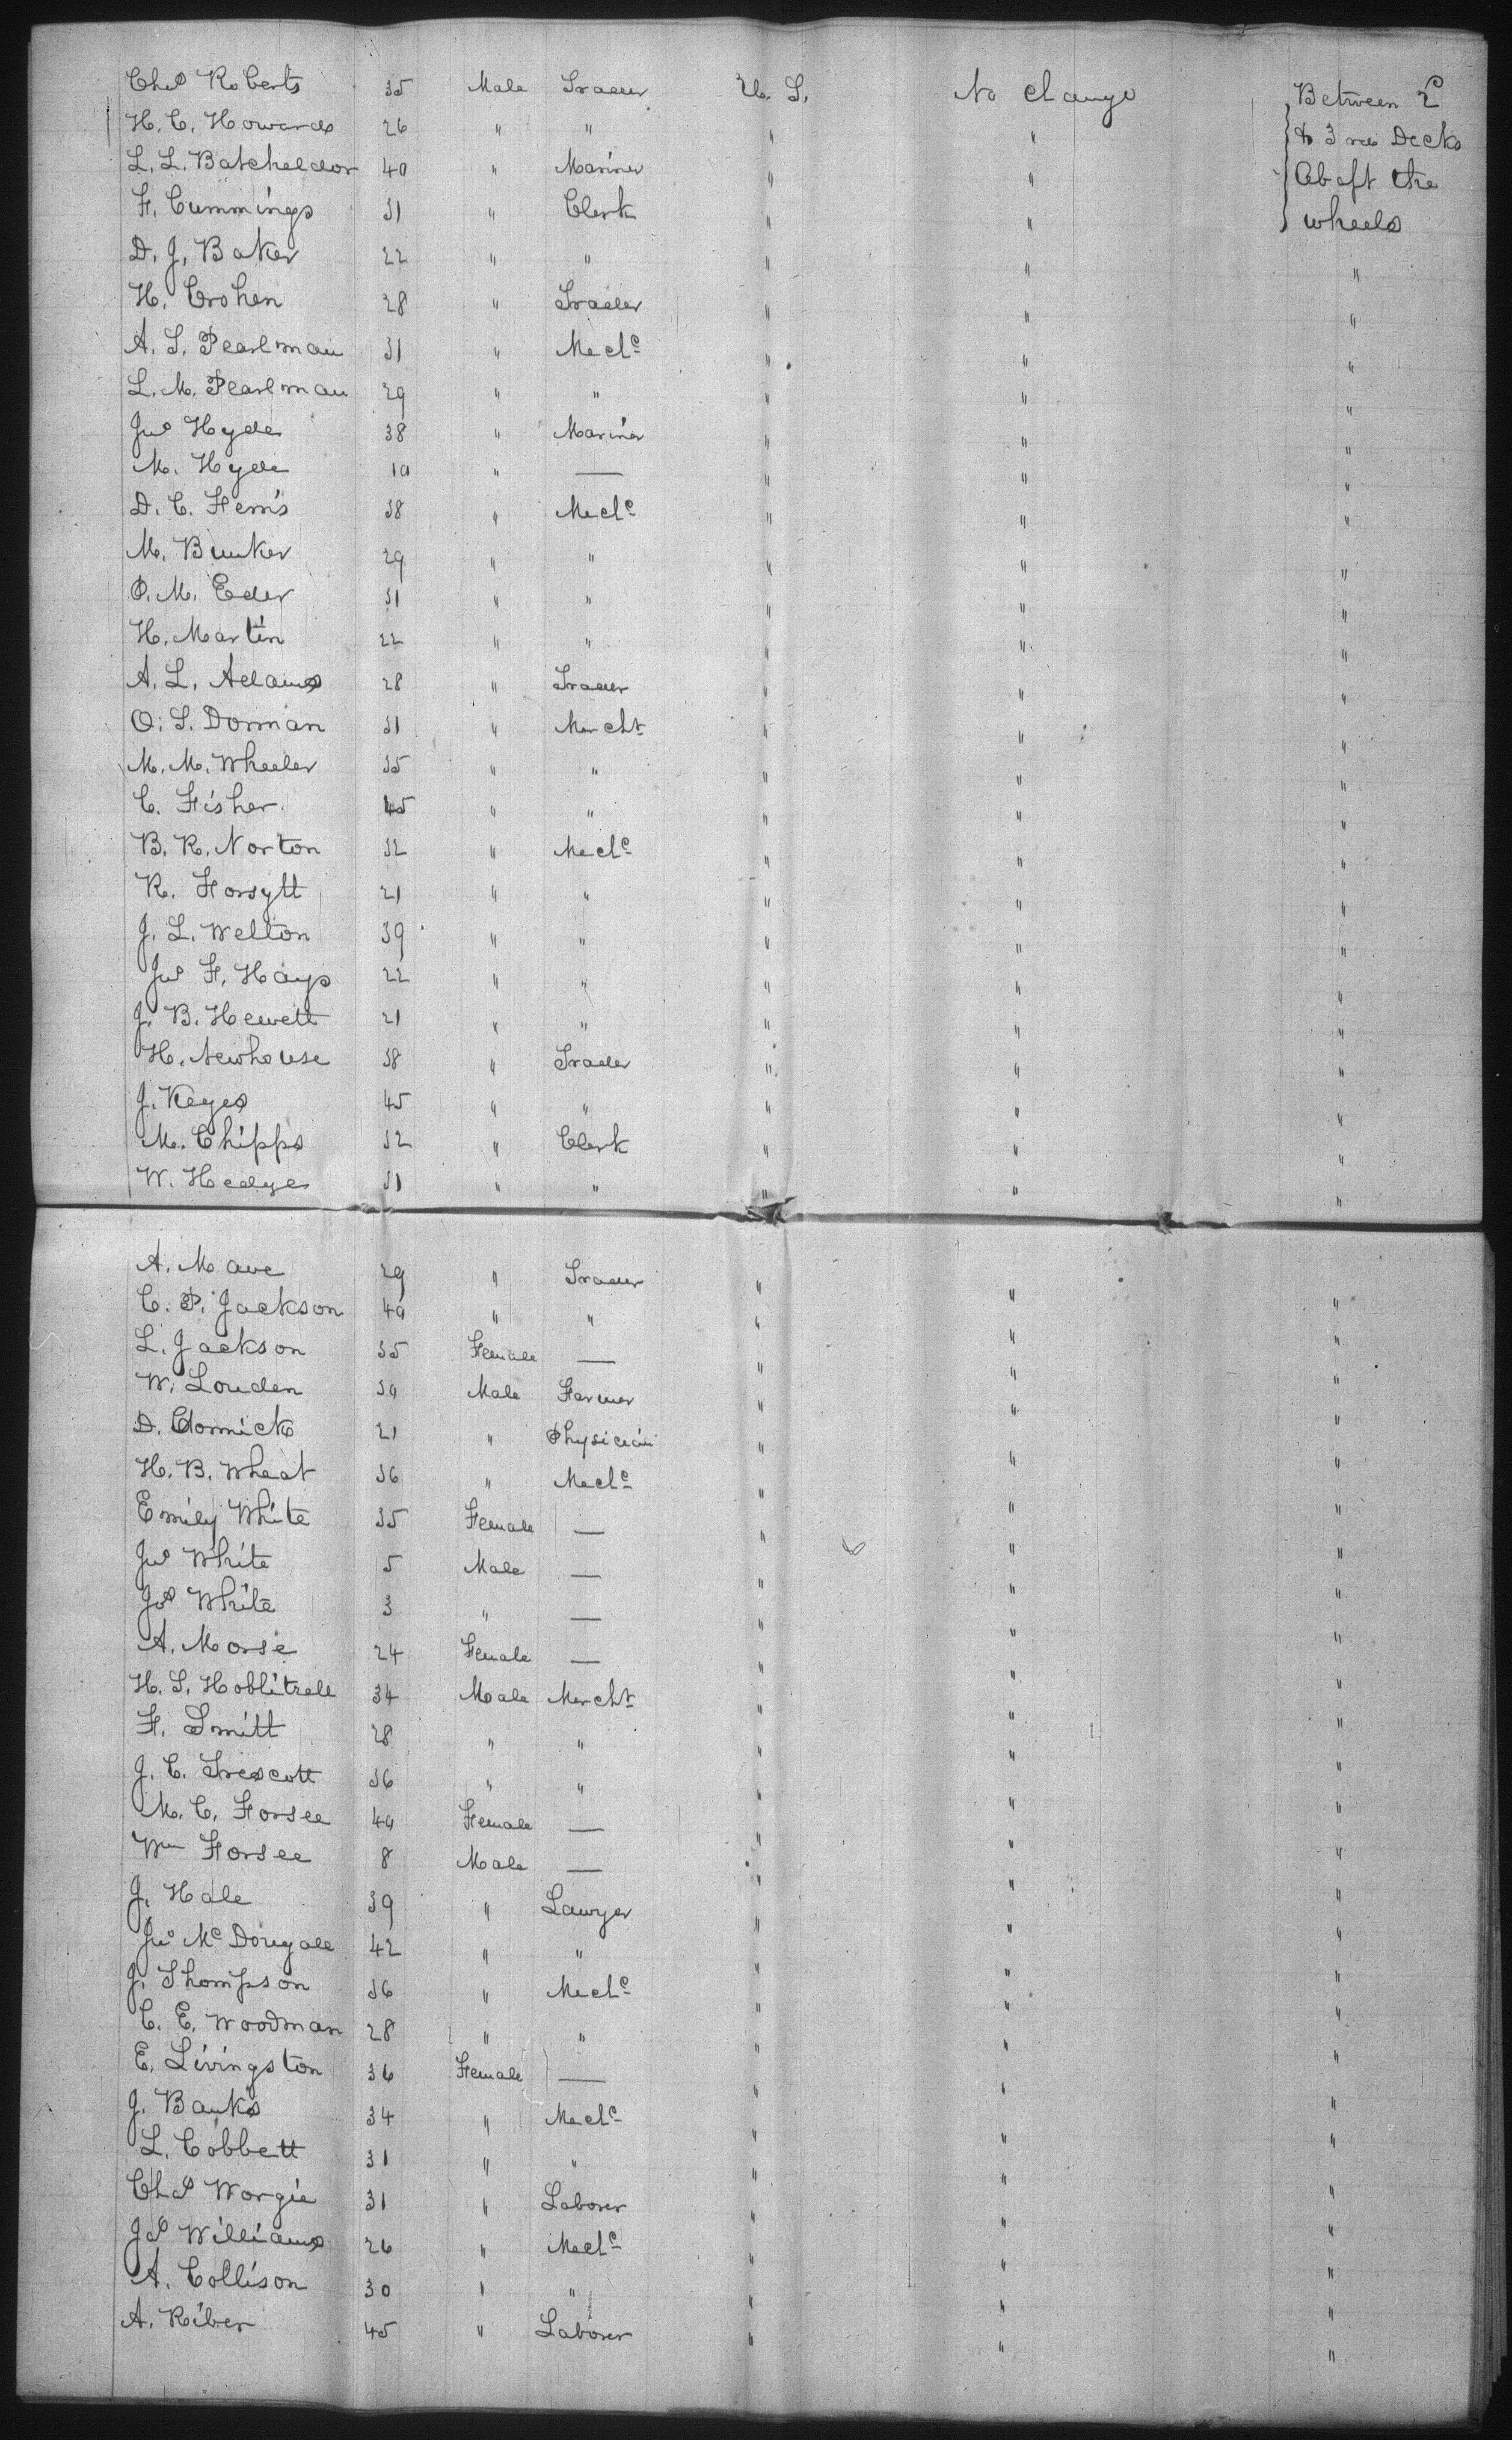 Chas Roberts 35 Male Trader U. S. No Change Between 2d
H. C. Howards 26 " " " " & 3rd Decks
L. L. Batcheldor 40 " Mariner " " Abaft the
F. Cummings 31 " Clerk " " wheels
D. J. Baker 22 " " " " "
H. Crohen 28 " Trader " " "
A. S. Pearlman 31 " Mechc " " "
L. M. Pearlman 29 " " " " "
Jno Hyde 38 " Mariner " " "
M. Hyde 10 " — " " "
D. C. Ferris 38 " Mechc " " "
M. Bunker 29 " " " " "
P. M. Eder 31 " " " " "
H. Martin 22 " " " " "
A. L. Adams 28 " Trader " " "
O. S. Dorman 31 " Mercht " " "
M. M. Wheeler 35 " " " " "
C. Fisher 45 " " " " "
B. R. Norton 32 " Mechc " " "
R. Forsytt 21 " " " " "
J. L. Welton 39 " " " " "
Jno F. Hays 22 " " " " "
J. B. Hewett 21 " " " " "
H. Newhouse 38 " Trader " " "
J. Keyes 45 " " " " "
M. Chipps 32 " Clerk " " "
W. Hedges 31 " " " " "
A. Mave 29 " Trader " " "
C. P. Jackson 40 " " " " "
L. Jackson 35 Female — " " "
W. Louden 30 Male Farmer " " "
D. 21 " Physician " " "
H. B. Wheat 36 " Mechc " " "
Emily White 35 Female — " " "
Jno White 5 Male — " " "
Jos White 3 " — " " "
A. Morse 24 Female — " " "
H. S. Hoblitzell 34 Male Mercht " " "
F. Smitt 28 " " " " "
J. C. Trescott 36 " " " " "
M. C. Forsee 40 Female — " " "
Wm Forsee 8 Male — " " "
J. Hale 39 " Lawyer " " "
Jno McDougall 42 " " " " "
J. Thompson 36 " Mechc " " "
C. E. Woodman 28 " " " " "
E. Livingston 36 Female — " " "
J. Banks 34 " Mechc " " "
L. Cobbett 31 " " " " "
Chas Worgie 31 " Laborer " " "
Jas Williams 26 " Mechc " " "
A. Collison 30 " " " " "
A. Riber 45 " Laborer " " "